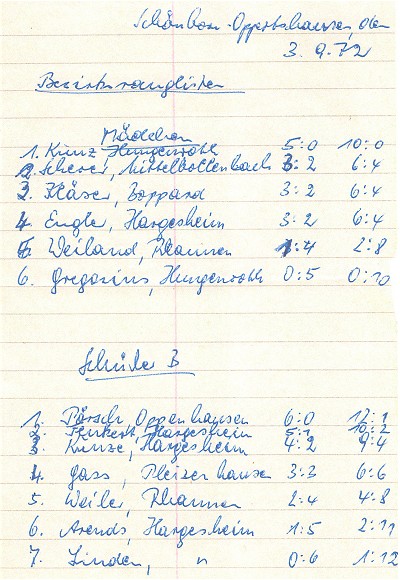 Schönborn-Oppertshausen, den
3. 9. 72
Bezirksranglisten
Mädchen
1. Kunz Hungenroth 5:0 10:0
2. Scherer, Mittelbollenbach 3:2 6:4
3. Kläser, Boppard 3:2 6:4
4. Engler, Hargesheim 3:2 6:4
5. Weiland, Rhaunen 1:4 2:8
6. Gregorius, Hungenroth 0:5 0:10
Schüler B
1. Pörsch, Oppenhausen 6:0 12:1
2. Hargesheim 5:1 10:2
3. Kunze, Hargesheim 4:2 9:4
4. Gass, Pleizenhausen 3:3 6:6
5. Weiler, Rhaunen 2:4 4:8
6. Arends, Hargesheim 1:5 2:11
7. Linden, " 0:6 1:12